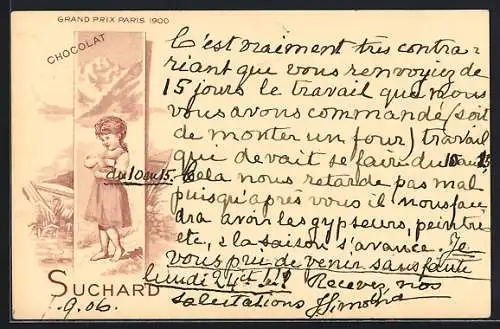 GRAND PRIX PARIS 1900
CHOCOLAT
C'est vraiment très contra-
riant que vous renvoyiez de
15 jours le travail que nous
vous avons commandé (soit
de monter un four) travail
qui devait se faire du 10 au 15
du 10 au 15. Cela nous retarde pas mal
puisqu'après vous il nous fau
dra avoir les gypseurs, peintre
etc., & la saison s'avance. Je
vous prie de venir sans faute
lundi 24 ct !!! Recevez nos
salutations
SUCHARD
.9.06.